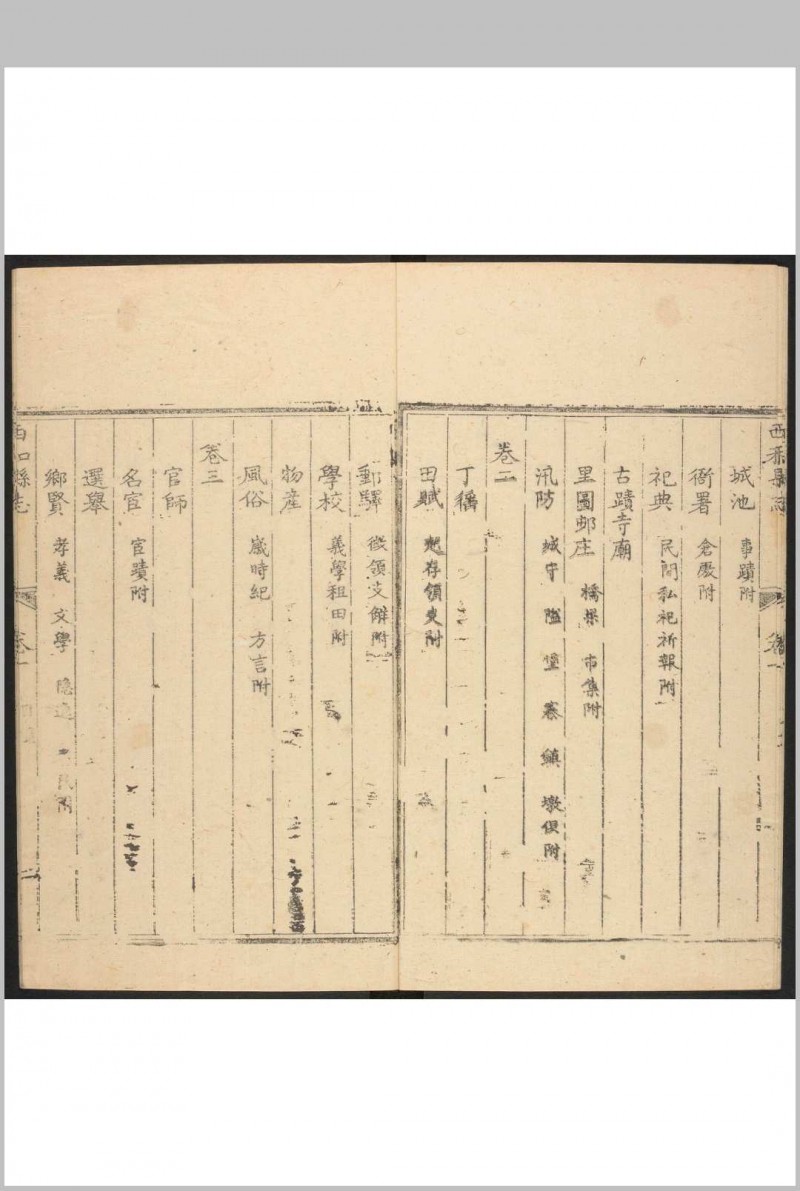 城池 事蹟附
衙署 倉廒附
祀典 民間私祀祈報附
古蹟寺廟
里圖邨庄 橋梁 市集附
汛防 城守 隘 堡 寨 鎮 墩附
卷二
丁糧
田賦 起存領支附
郵驛 徵領支解附
學校 義學租田附
物産
風俗 歲時紀 方言附
卷三
官師
名宦 宦蹟附
選舉
鄉賢 孝義 文學 隱逸
縣志
卷一